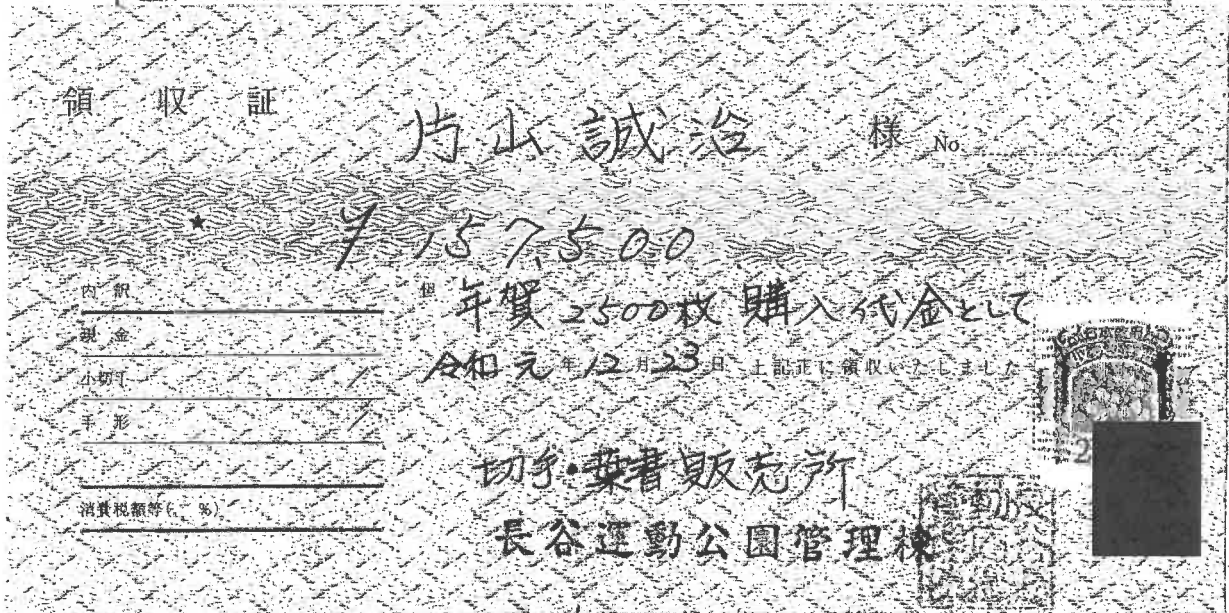 領収証
片山誠治 様 No.
★ ¥157,500
但 年賀 2500枚 購入代金として
令和元年12月23日 上記正に領収いたしました
内訳
現金
小切手
手形
消費税額等( %)
切手・葉書販売所
長谷運動公園管理棟